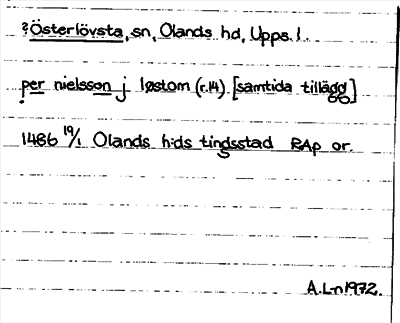 ?Österlövsta, sn, Olands hd, Upps. l.
per nielsson j løstom (r.14). [samtida tillägg]
1486 19/1 Olands h:ds tingsstad RAp or.
A.L-n 1972.